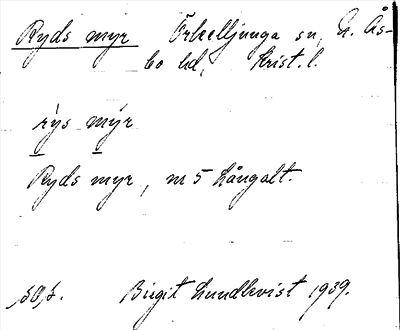 Ryds myr Örkelljunga sn, N. Ås-
bo hd, Krist. l.
rýs mýr
Ryds myr, m 5 Långalt.
Birgit Lundkvist 1939.